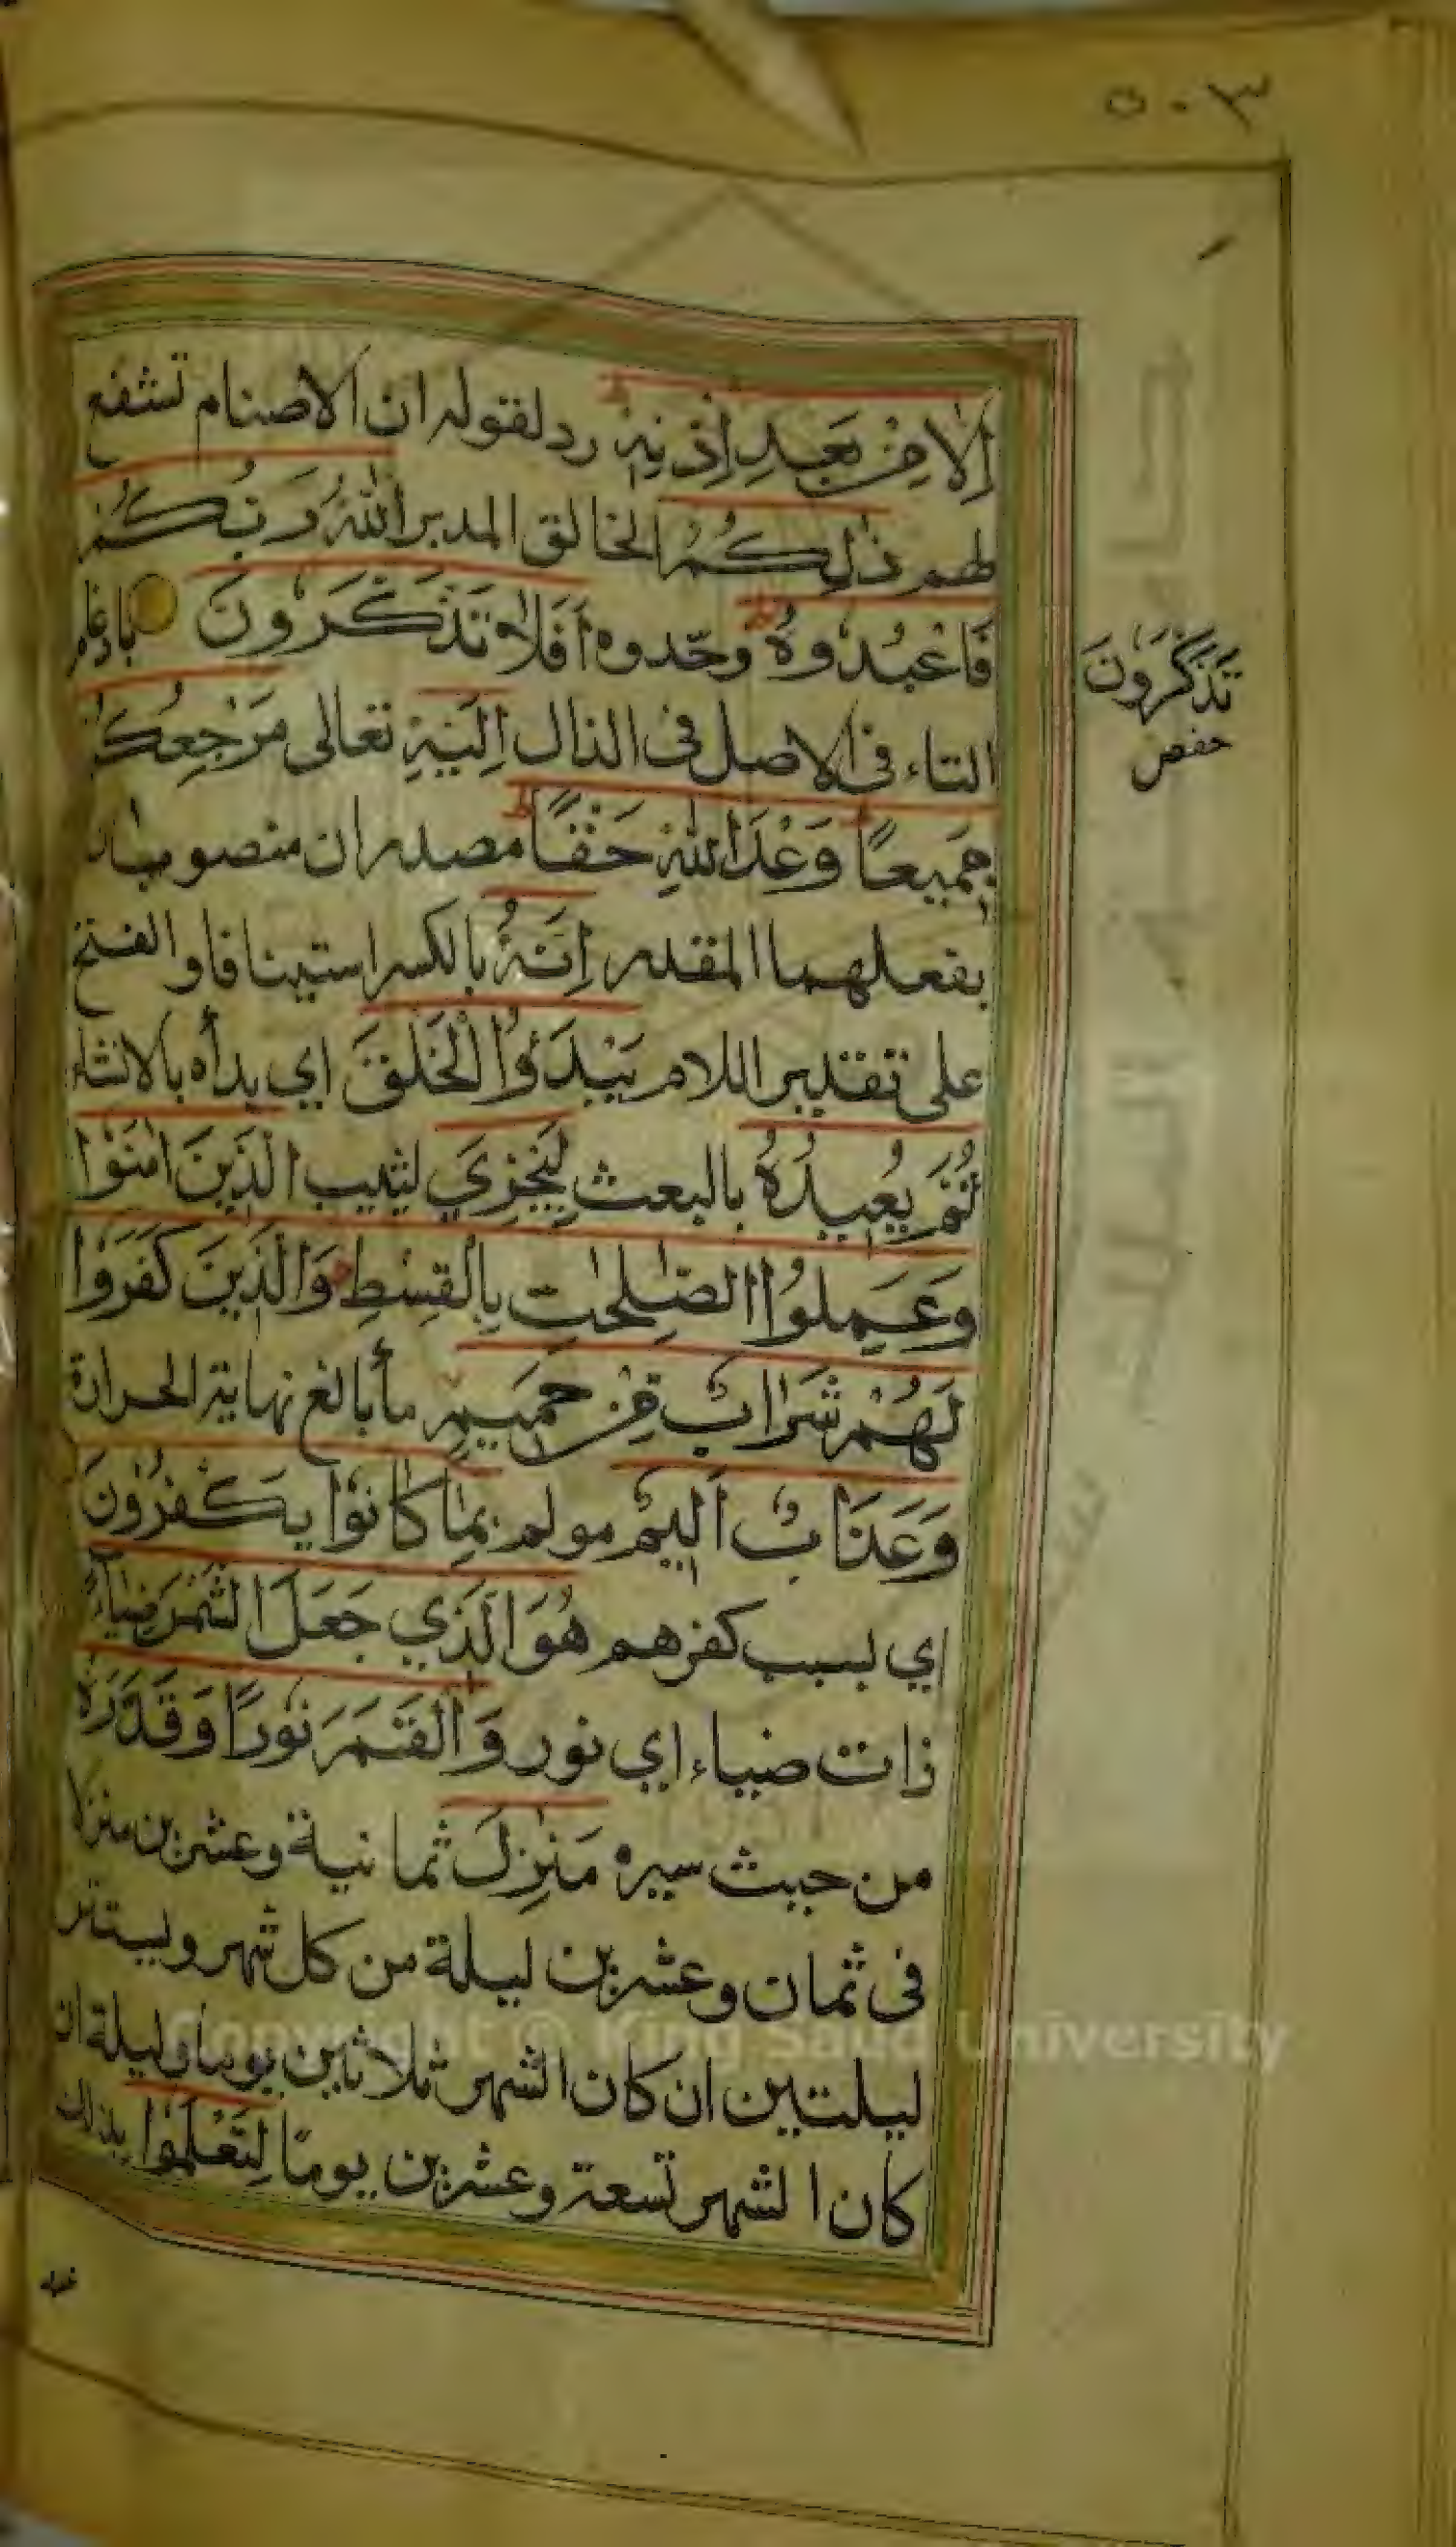 ٥٠٣
اِلَّا مِنْ بَعْدِ اِذْنِهٖ رد لقوله ان الاصنام تشفع
لهم ذٰلِكُمُ الخالق المدبر اللّٰهُ رَبُّكُمْ
فَاعْبُدُوهُ وحّدوه اَفَلَا تَذَّكَّرُونَ بادغام
التاء فى الاصل فى الذال اِلَيْهِ تعالى مَرْجِعُكُمْ
جَمِيعًا وَعْدَ اللّٰهِ حَقًّا مصدران منصوبان
بفعلهما المقدر اِنَّهُ بالكسر استينافا والفتح
على تقدير اللام يَبْدَؤُا الْخَلْقَ اي بدأه بالانشاء
ثُمَّ يُعِيدُهُ بالبعث لِيَجْزِيَ ليثيب الَّذِينَ اٰمَنُوْا
وَعَمِلُوا الصّٰلِحٰتِ بِالْقِسْطِ وَالَّذِينَ كَفَرُوْا
لَهُمْ شَرَابٌ مِّنْ حَمِيمٍ مأبالغ نهاية الحرارة
وَعَذَابٌ اَلِيْمٌ مولم بِمَا كَانُوْا يَكْفُرُوْنَ
اي بسبب كفرهم هُوَ الَّذِي جَعَلَ الشَّمْسَ ضِيَآءً
ذات ضياء اي نور وَالْقَمَرَ نُورًا وَقَدَّرَهُ
من حيث سيره مَنَازِلَ ثمانية وعشرين منزلا
فى ثمان وعشرين ليلة من كل شهر ويستتر
ليلتين ان كان الشهر ثلاثين يوما وليلة ان
كان الشهر تسعة وعشرين يوما لِتَعْلَمُوْا بذلك
تَذَكَّرُونَ
حفص
Copyright © King Saud University